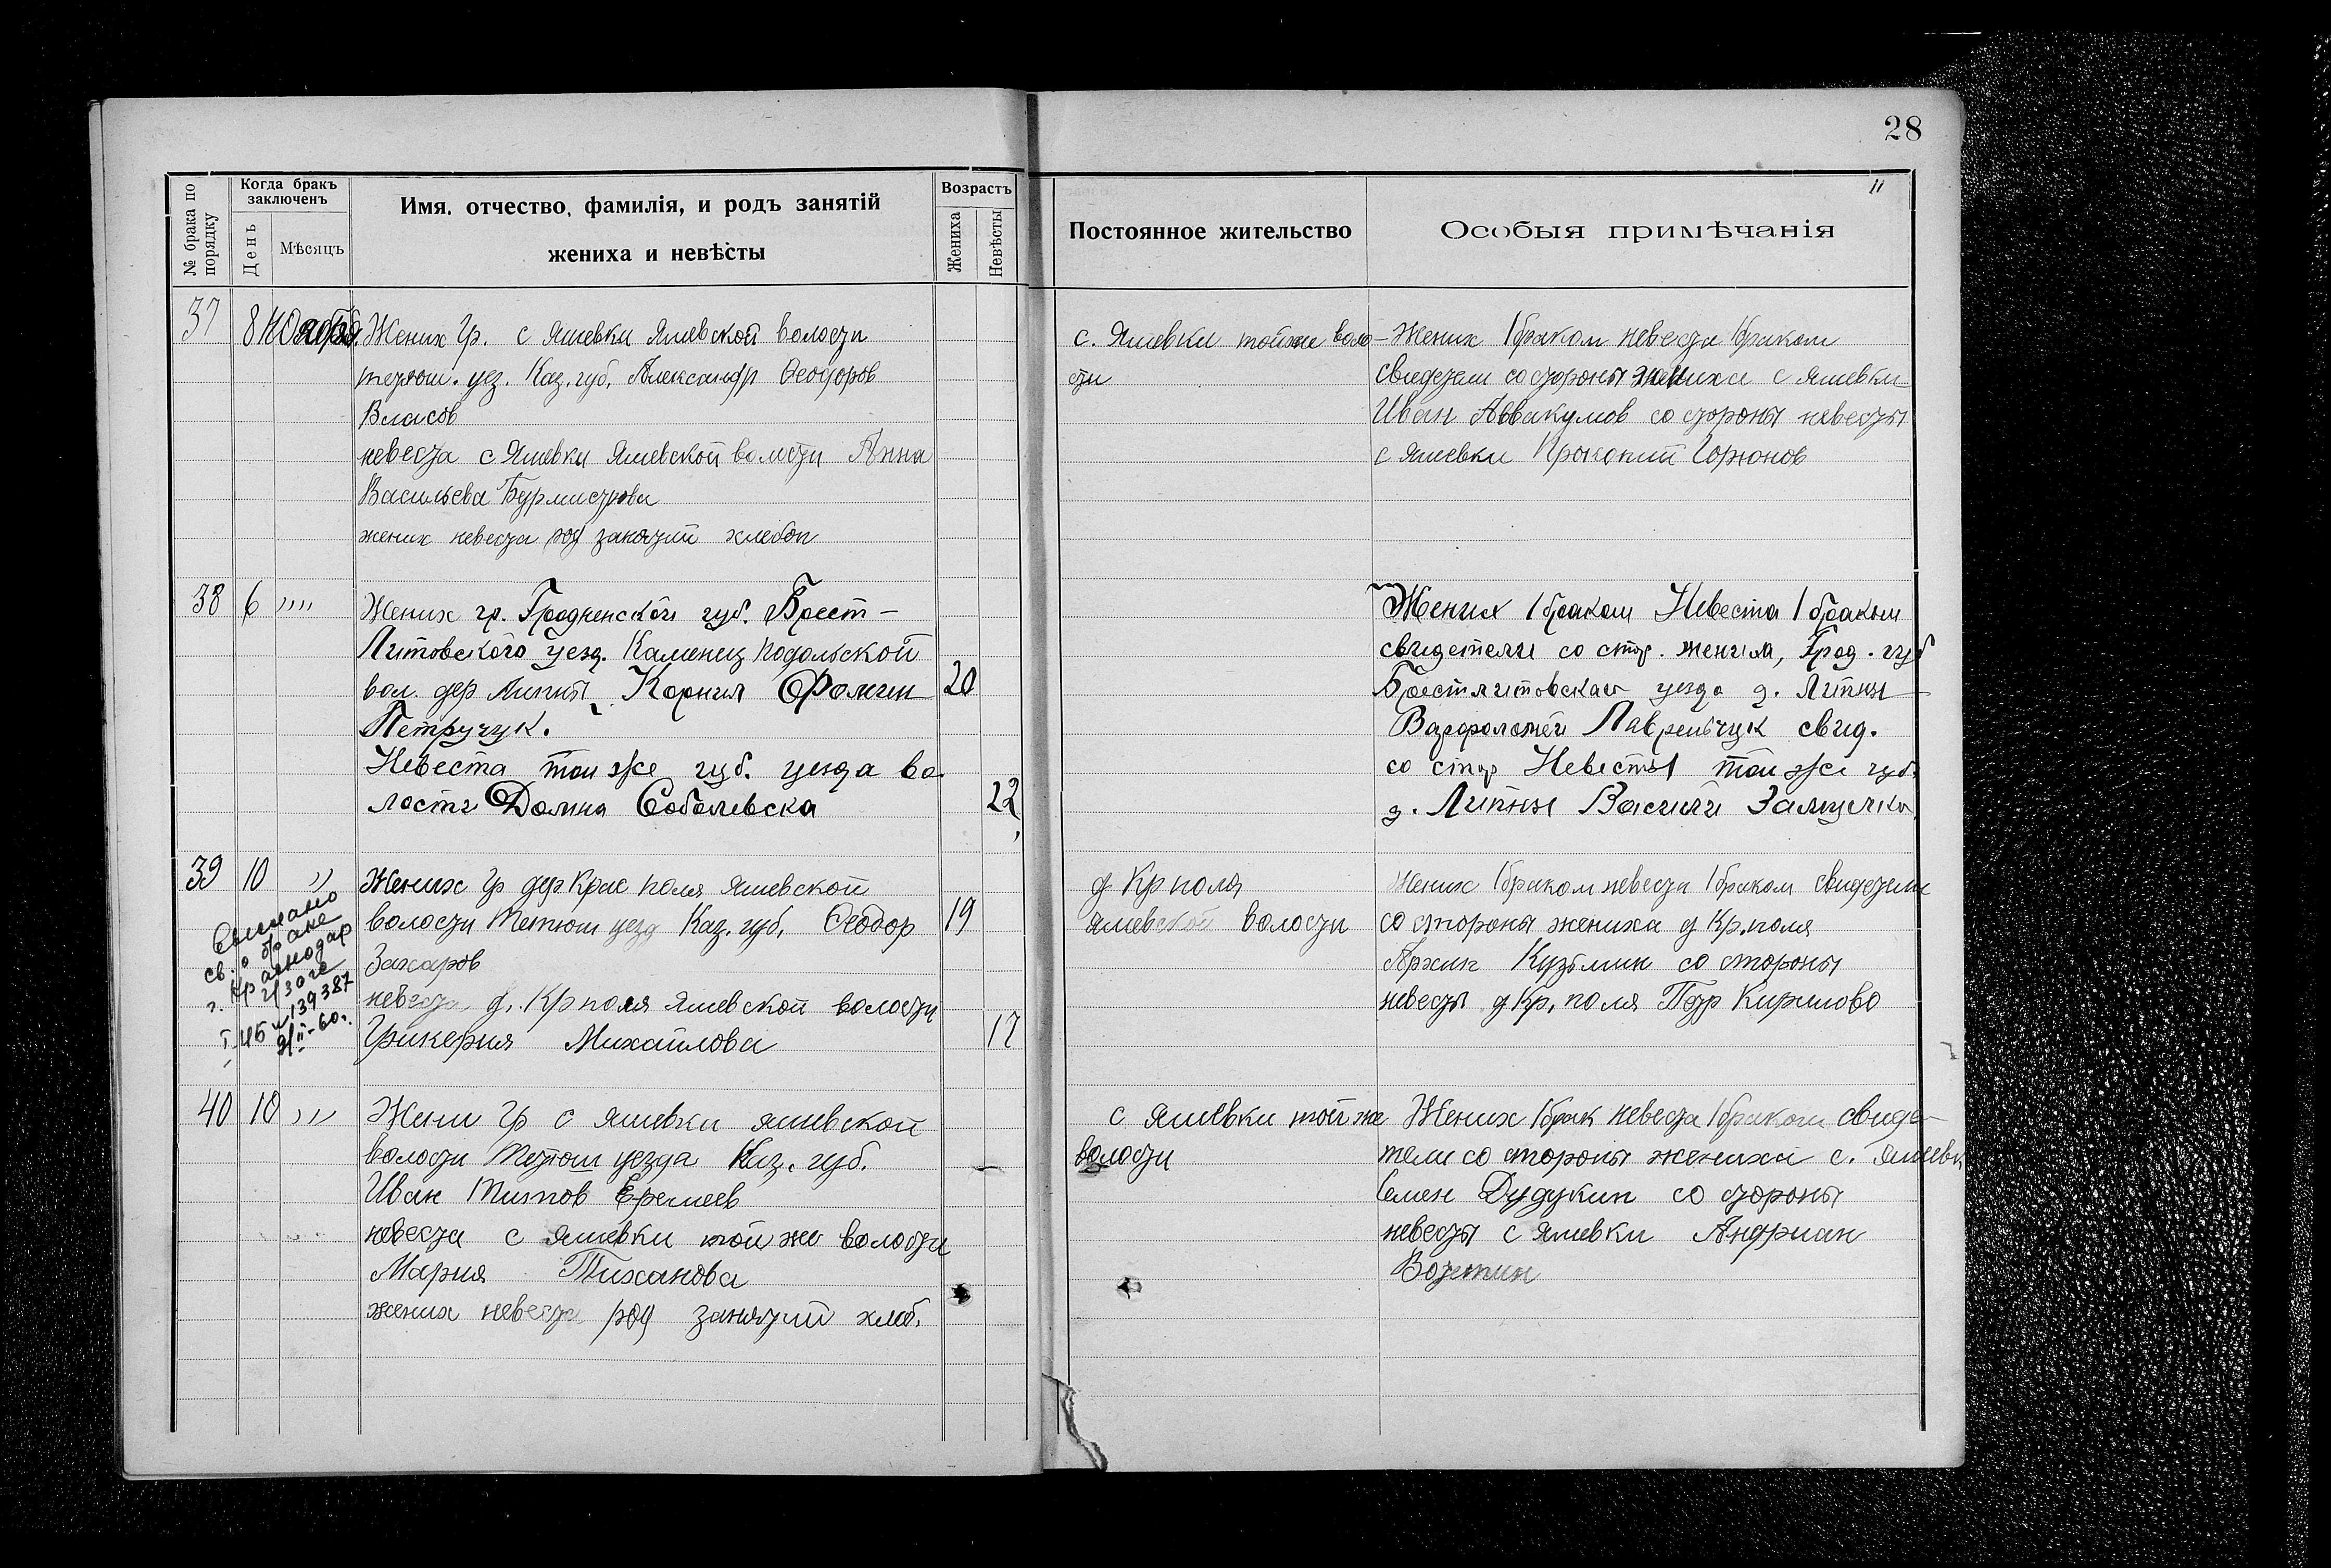 28
11
№ брака по порядку
Когда бракъ заключенъ
День
Мѣсяцъ
Имя, отчество, фамилія, и родъ занятій
жениха и невѣсты
Возрастъ
Жениха
Невѣсты
Постоянное жительство
Особыя примѣчанія
37
8 Ноября
Жених Гр. с Яшевки Яшевской волости
тетюш. уез. Каз. губ. Александр Феодоров
Власов
невеста с Яшевки Яшевской волости Анна
Васильева Бурмистрова
жених невеста род занятий хлебоп
с. Яшевки той же воло-
сти
Жених 1 браком невеста 1 браком
свидетели со стороны жениха с Яшевки
Иван Аввакумов со стороны невесты
с Яшевки Прокопий Горюнов
38
6
""
Жених гр. Гродненской губ. Брест-
Литовского уезд. Каменец Подольской
вол. дер Липны Корнил Фомин
20
Петручук.
Невеста той же губ. уезда во-
лости Домна Соболевска
22
Жених 1 браком Невеста 1 браком
свидетели со стор. жениха, Грод. губ
Брестлитовскаго уезда д. Липны
Варфоломей Лаврентчук свид.
со стор Невесты той же губ.
д. Липны Василий
39
10
"
Жених Гр дер Крас поля, Яшевской
волости Тетюш уезд Каз. губ. Феодор
19
Захаров
невеста д. Кр поля Яшевской волости
Гликерия Михайлова
17
св. о браке
г. Краснодар
139387
д Кр поля
Яшевской волости
Жених 1 браком невеста 1 браком свидетели
со стороны жениха д Кр. поля
Архип Кузьмин со стороны
невесты д Кр. поля Петр Кирилово
40
10
""
Жени Гр с Яшевки Яшевской
волости Тетюш уезда Каз. губ.
Иван Титов Еремеев
невеста с Яшевки той же волости
Мария Тиханова
жених невеста род занятий хлеб.
с Яшевки той же
волости
Жених 1 брак невеста 1 браком свиде-
тели со стороны жениха с. Яшевк
Семен Дудукин со стороны
невесты с Яшевки Андриан